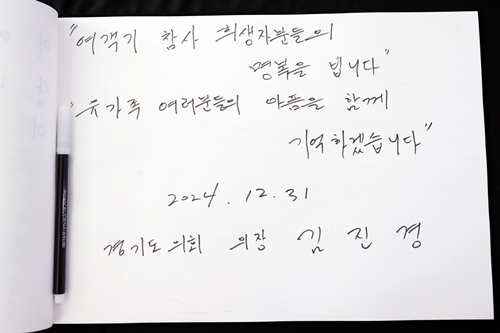 "여객기 참사 희생자분들의
명복을 빕니다"
"유가족 여러분들의 아픔을 함께
기억하겠습니다"
2024. 12. 31
경기도의회 의장 김 진 경